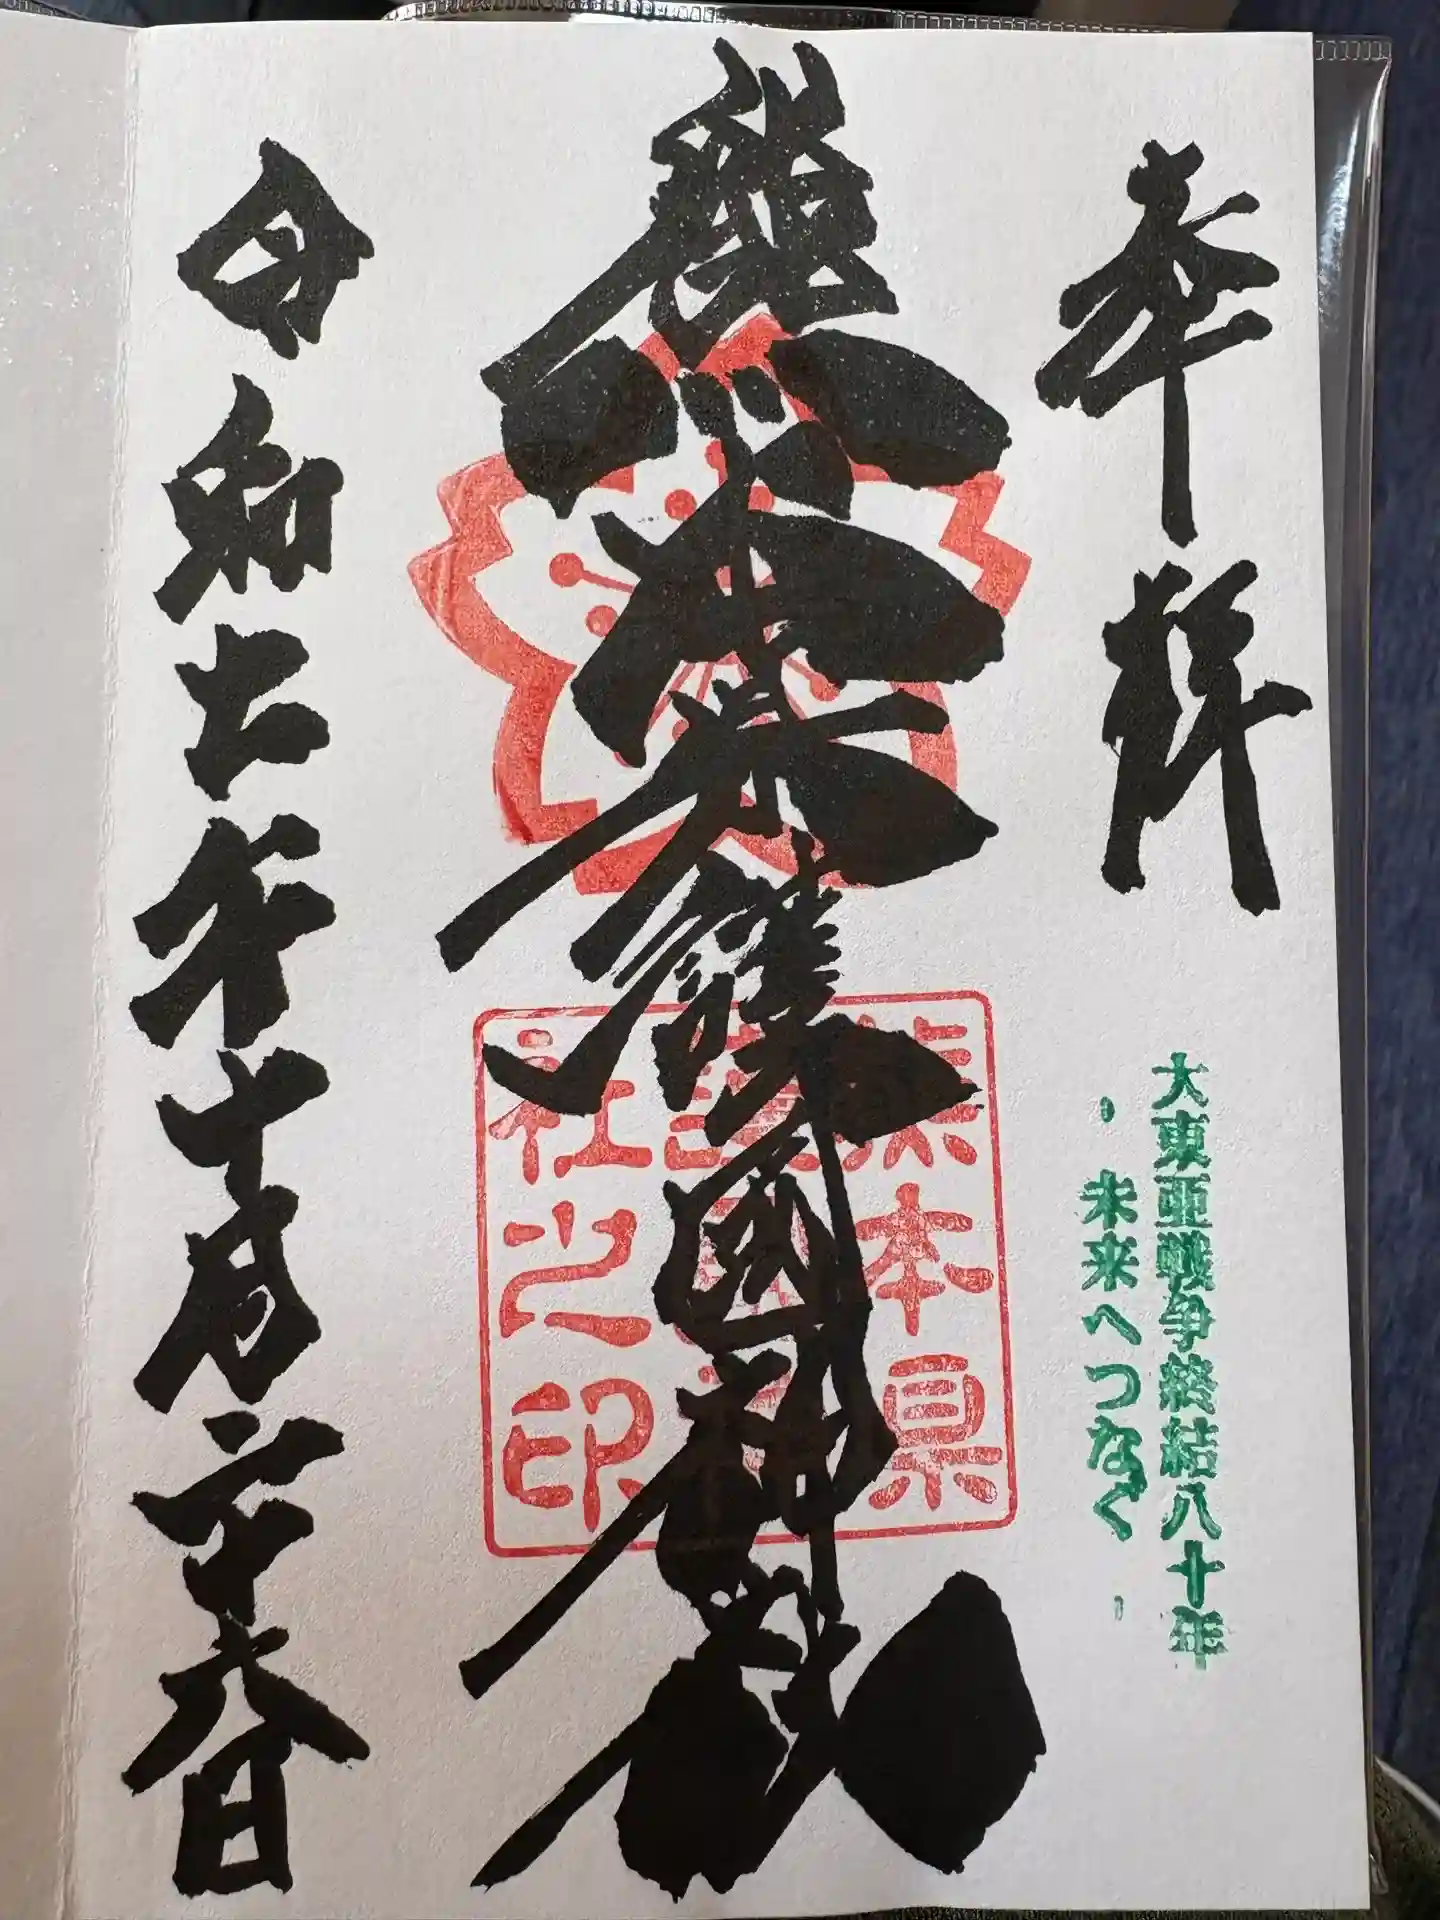 奉拝
大東亜戦争終結八十年
・未来へつなぐ・
熊本県護國神社
熊本県
護国神
社之印
令和七年十月二十八日